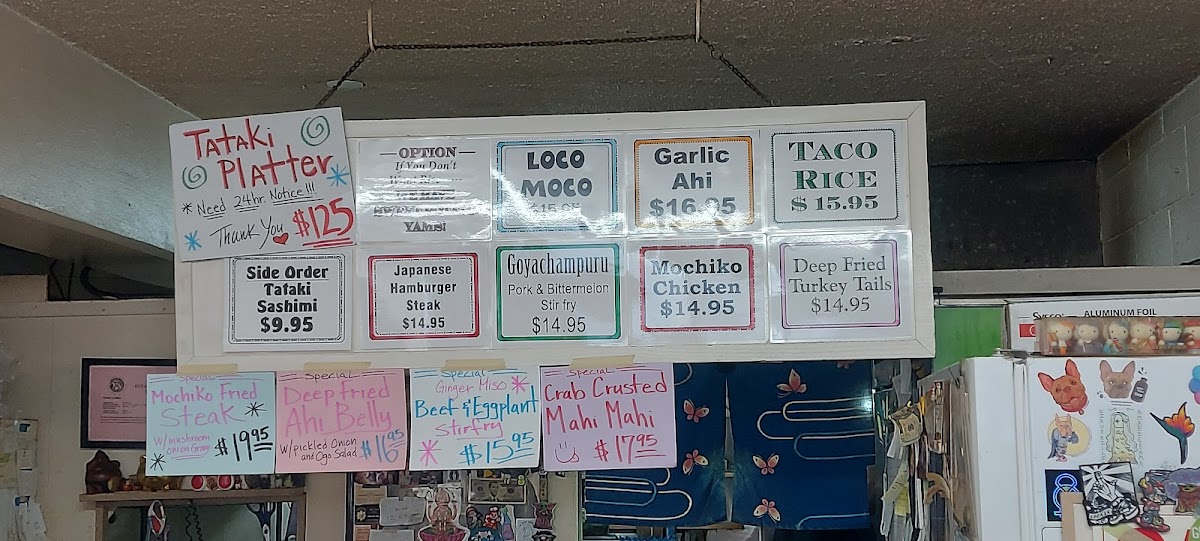 Tataki
Platter
* Need 24hr. Notice!!!
Thank You $125
OPTION
If You Don't
YAMS!
LOCO
MOCO
Garlic
Ahi
$16.95
TACO
RICE
$ 15.95
Side Order
Tataki
Sashimi
$9.95
Japanese
Hamburger
Steak
$14.95
Goyachampuru
Pork & Bittermelon
Stir fry
$14.95
Mochiko
Chicken
$14.95
Deep Fried
Turkey Tails
$14.95
Special
Mochiko Fried
Steak
W/mushroom
onion Gravy
$19.95
Special
Deep Fried
Ahi Belly
W/pickled Onion
and Ogo Salad
$16.95
Special
Ginger Miso
Beef & Eggplant
Stirfry
$15.95
Special
Crab Crusted
Mahi Mahi
$17.95
ALUMINUM FOIL